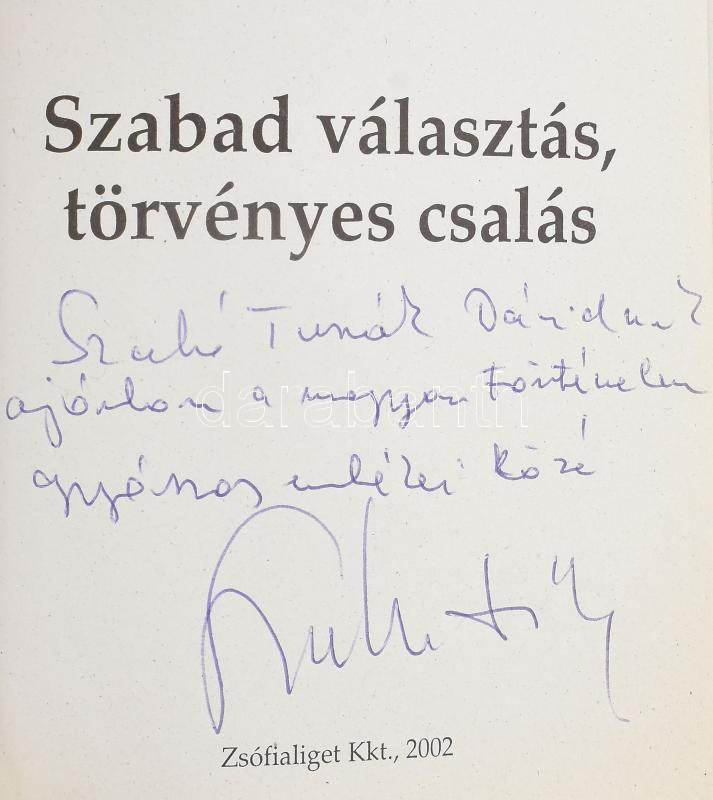 Szabad választás,
törvényes csalás
Szabó Tünde Dávidnak
ajánlom a magyar történelem
gyászos emlékei közé
darabanth
Zsófialiget Kkt., 2002